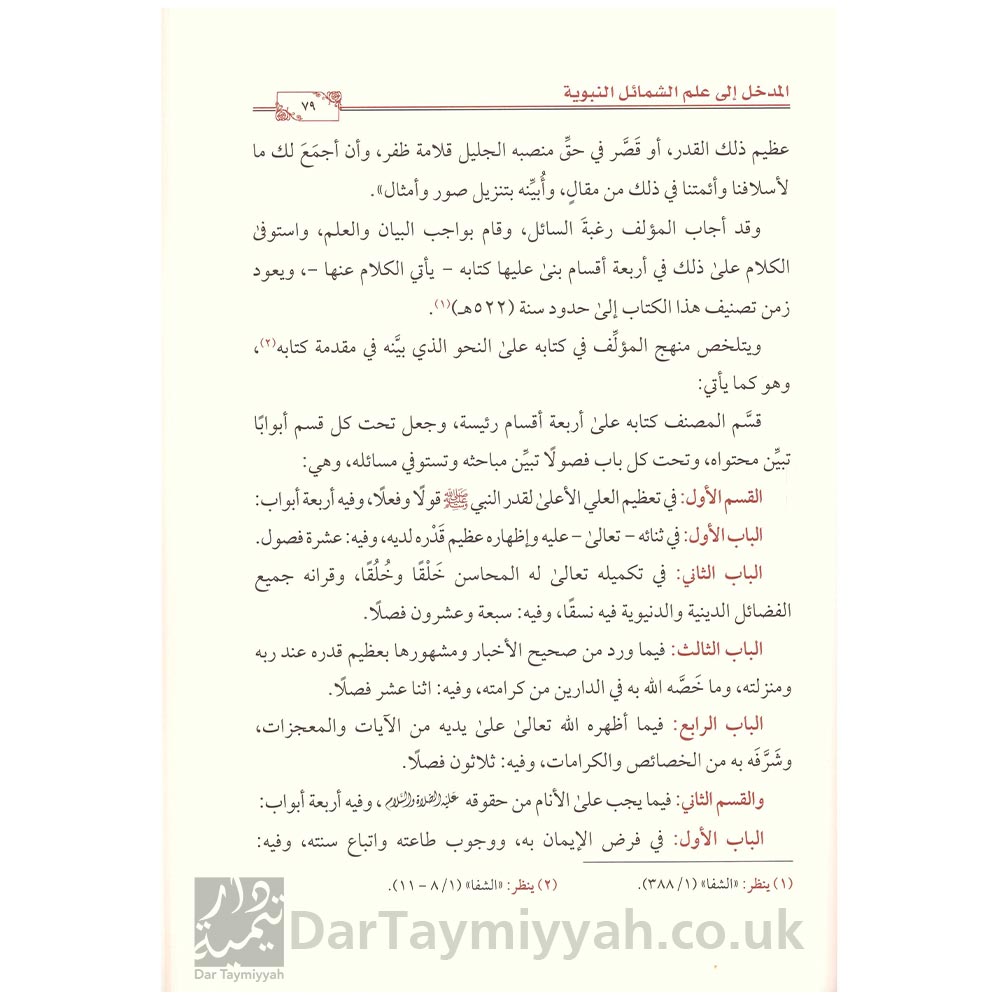 المدخل إلى علم الشمائل النبوية
٧٩
عظيم ذلك القدر، أو قَصَّر في حقِّ منصبه الجليل قلامة ظفر، وأن أجمَعَ لك ما
لأسلافنا وأئمتنا في ذلك من مقالٍ، وأُبيِّنه بتنزيل صور وأمثال».
وقد أجاب المؤلف رغبةَ السائل، وقام بواجب البيان والعلم، واستوفىٰ
الكلام علىٰ ذلك في أربعة أقسام بنىٰ عليها كتابه – يأتي الكلام عنها –، ويعود
زمن تصنيف هذا الكتاب إلىٰ حدود سنة (٥٢٢هـ)(١).
ويتلخص منهج المؤلِّف في كتابه علىٰ النحو الذي بيَّنه في مقدمة كتابه(٢)،
وهو كما يأتي:
قسَّم المصنف كتابه علىٰ أربعة أقسام رئيسة، وجعل تحت كل قسم أبوابًا
تبيِّن محتواه، وتحت كل باب فصولًا تبيِّن مباحثه وتستوفي مسائله، وهي:
القسم الأول: في تعظيم العلي الأعلىٰ لقدر النبي ﷺ قولًا وفعلًا، وفيه أربعة أبواب:
الباب الأول: في ثنائه – تعالىٰ – عليه وإظهاره عظيم قَدْره لديه، وفيه: عشرة فصول.
الباب الثاني: في تكميله تعالىٰ له المحاسن خَلْقًا وخُلُقًا، وقرانه جميع
الفضائل الدينية والدنيوية فيه نسقًا، وفيه: سبعة وعشرون فصلًا.
الباب الثالث: فيما ورد من صحيح الأخبار ومشهورها بعظيم قدره عند ربه
ومنزلته، وما خَصَّه الله به في الدارين من كرامته، وفيه: اثنا عشر فصلًا.
الباب الرابع: فيما أظهره الله تعالىٰ علىٰ يديه من الآيات والمعجزات،
وشَرَّفَه به من الخصائص والكرامات، وفيه: ثلاثون فصلًا.
والقسم الثاني: فيما يجب علىٰ الأنام من حقوقه عَلَيْهِ الصَّلَاةُ وَالسَّلَامُ، وفيه أربعة أبواب:
الباب الأول: في فرض الإيمان به، ووجوب طاعته واتباع سنته، وفيه:
(١) ينظر: «الشفا» (١/ ٣٨٨).
(٢) ينظر: «الشفا» (١/ ٨ – ١١).
دار تيمية
Dar Taymiyyah
DarTaymiyyah.co.uk